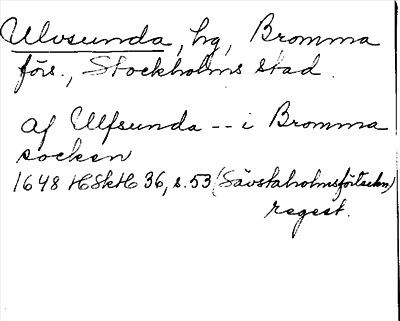 Ulvsunda, hg, Bromma
förs., Stockholms stad.
af Ulfsunda -- i Bromma
socken
1648 HSkH 36, s. 53 (Sävstaholmsförteckn)
regest.